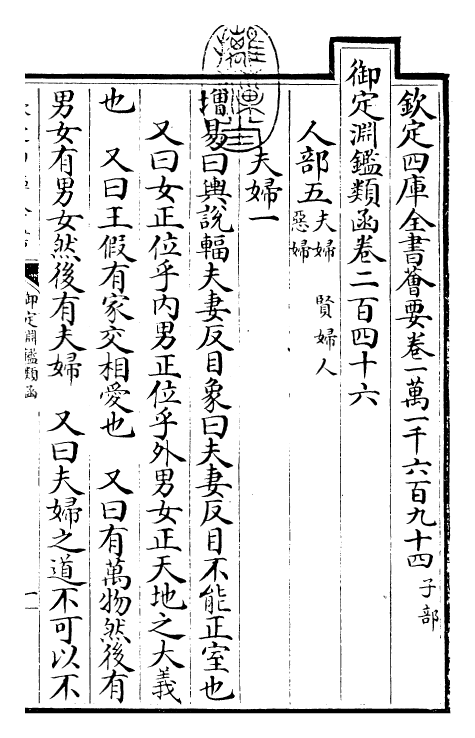 欽定四庫全書薈要卷一萬一千六百九十四子部
御定淵鑑類函卷二百四十六
人部五夫婦 賢婦人
惡婦
夫婦一
增易曰輿説輻夫妻反目象曰夫妻反目不能正室也
又曰女正位乎内男正位乎外男女正天地之大義
也 又曰王假有家交相愛也 又曰有萬物然後有
男女有男女然後有夫婦 又曰夫婦之道不可以不
御定淵鑑類函